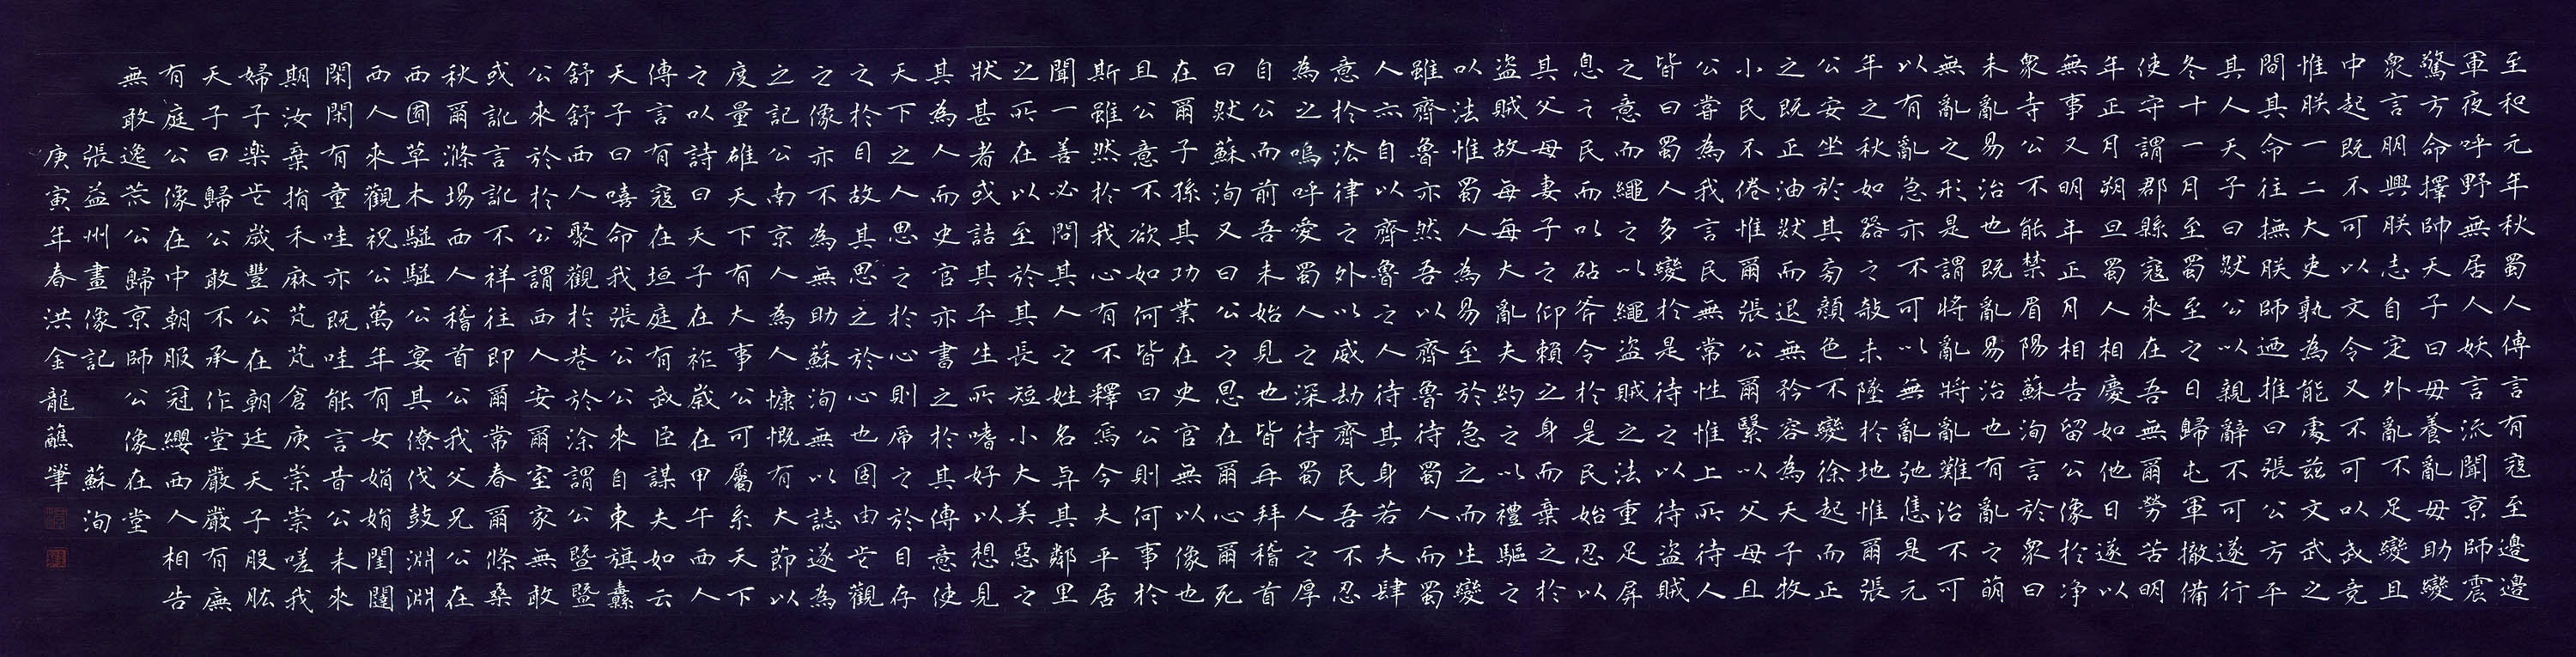 至和元年秋蜀人傳言有寇至邊邊
軍夜呼野無居人妖言流聞京師震
驚方命擇帥天子曰毋養亂毋助變
衆言朋興朕志自定外亂不足變且
中起既不可以文令又不可以武競
惟朕一二大吏孰為能處茲文武之
間其命往撫朕師迺推曰張公方平
其人天子曰然公以親辭不可遂行
冬十一月至蜀至之日歸屯軍撤備
使守謂郡縣寇來在吾無爾勞苦明
年正月朔旦蜀人相慶如他日遂以
無事又明年正月相告留公像於净
衆寺公不能禁眉陽蘇洵言於衆曰
未亂易治也既亂易治也有亂之萌
無亂之形是謂將亂將亂難治不可
以有亂急亦不可以無亂弛惟是元
年之秋如器之欹未墜於地惟爾張
公安坐於其旁顏色不變徐起而正
之既正油然而退無矜容為天子牧
小民不倦惟爾張公爾繄以父母且
公嘗為我言民無常性惟上所待人
皆曰蜀人多變於是待之以待盜賊
之意而繩之以繩盜賊之法重足屏
息之民而以砧斧令於是民始忍以
其父母妻子之仰賴之身而棄之於
盜賊故每每大亂夫約之以禮驅之
以法惟蜀人為易至於急之而生變
雖齊魯亦然吾以齊魯待蜀人而蜀
人亦自以齊魯之人待其身若夫肆
意於法律之外以威劫齊民吾不忍
為之嗚呼愛蜀人之深待蜀人之厚
自公而前吾未始見也皆再拜稽首
曰然蘇洵又曰公之恩在爾心爾死
在爾子孫其功業在史官無以像也
且公意不欲如何皆曰公則何事於
斯雖然於我心有不釋焉今夫平居
聞一善必問其人之姓名與其鄰里
之所在以至於其長短小大美惡之
狀甚者或詰其平生所嗜好以想見
其為人而史官亦書之於其傳意使
天下之人思之於心則席之於目存
之於目故其思之於心也固由此觀
之像亦不為無助蘇洵無以誌遂為
之記公南京人為人慷慨有大節以
度量雄天下有大事公可屬系天下
之以詩曰天子在祚歲在甲午西人
傳言有寇在垣庭有武臣謀夫如云
天子曰嘻命我張公公來自東旗纛
舒舒西人聚觀於巷於塗謂公暨暨
公來於於公謂西人安爾室家無敢
或訛訛言不祥往即爾常春爾條桑
秋爾滌場西人稽首公我父兄公在
西囿草木駢駢公宴其僚伐鼓淵淵
西人來觀祝公萬年有女娟娟閨闥
閑閑有童哇亦既哇能言昔公未來
期汝棄捐禾麻芃芃倉庾崇崇嗟我
婦子樂此歲豐公在朝廷天子股肱
天子曰歸公敢不承作堂嚴嚴有廡
有庭公像在中朝服冠纓西人相告
無敢逸荒公歸京師公像在堂
張益州畫像記 蘇洵
庚寅年春洪金龍蘸筆